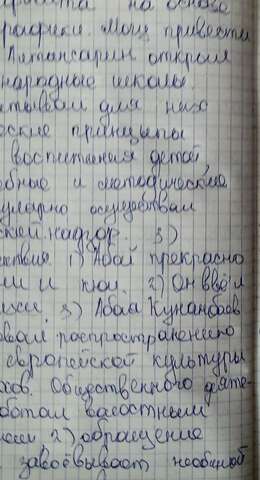 на основе
графики. Могу привести
Алтынсарин открыл
народные школы.
для них
ские принципы
воспитания детей,
бные и методические
улярно осуществлял
ский надзор. 3)
1) Абай прекрасно
ли и кюи. 2) Он ввёл
3) Абай Кунанбаев
овал распространению
европейской культуры
хов. Общественного деяте-
ботал
2) обращение
завоёвывает